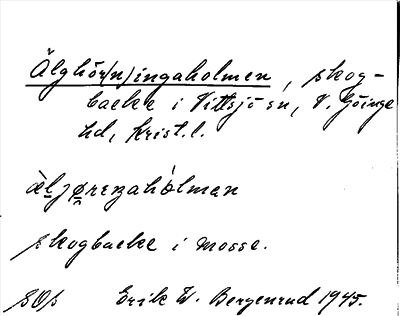 Älghör(n)ingaholmen, skog-
backe i Vittsjö sn, V. Göinge
hd, Krist. l.
skogbacke i mosse.
Erik W. Bergenrud 1945.